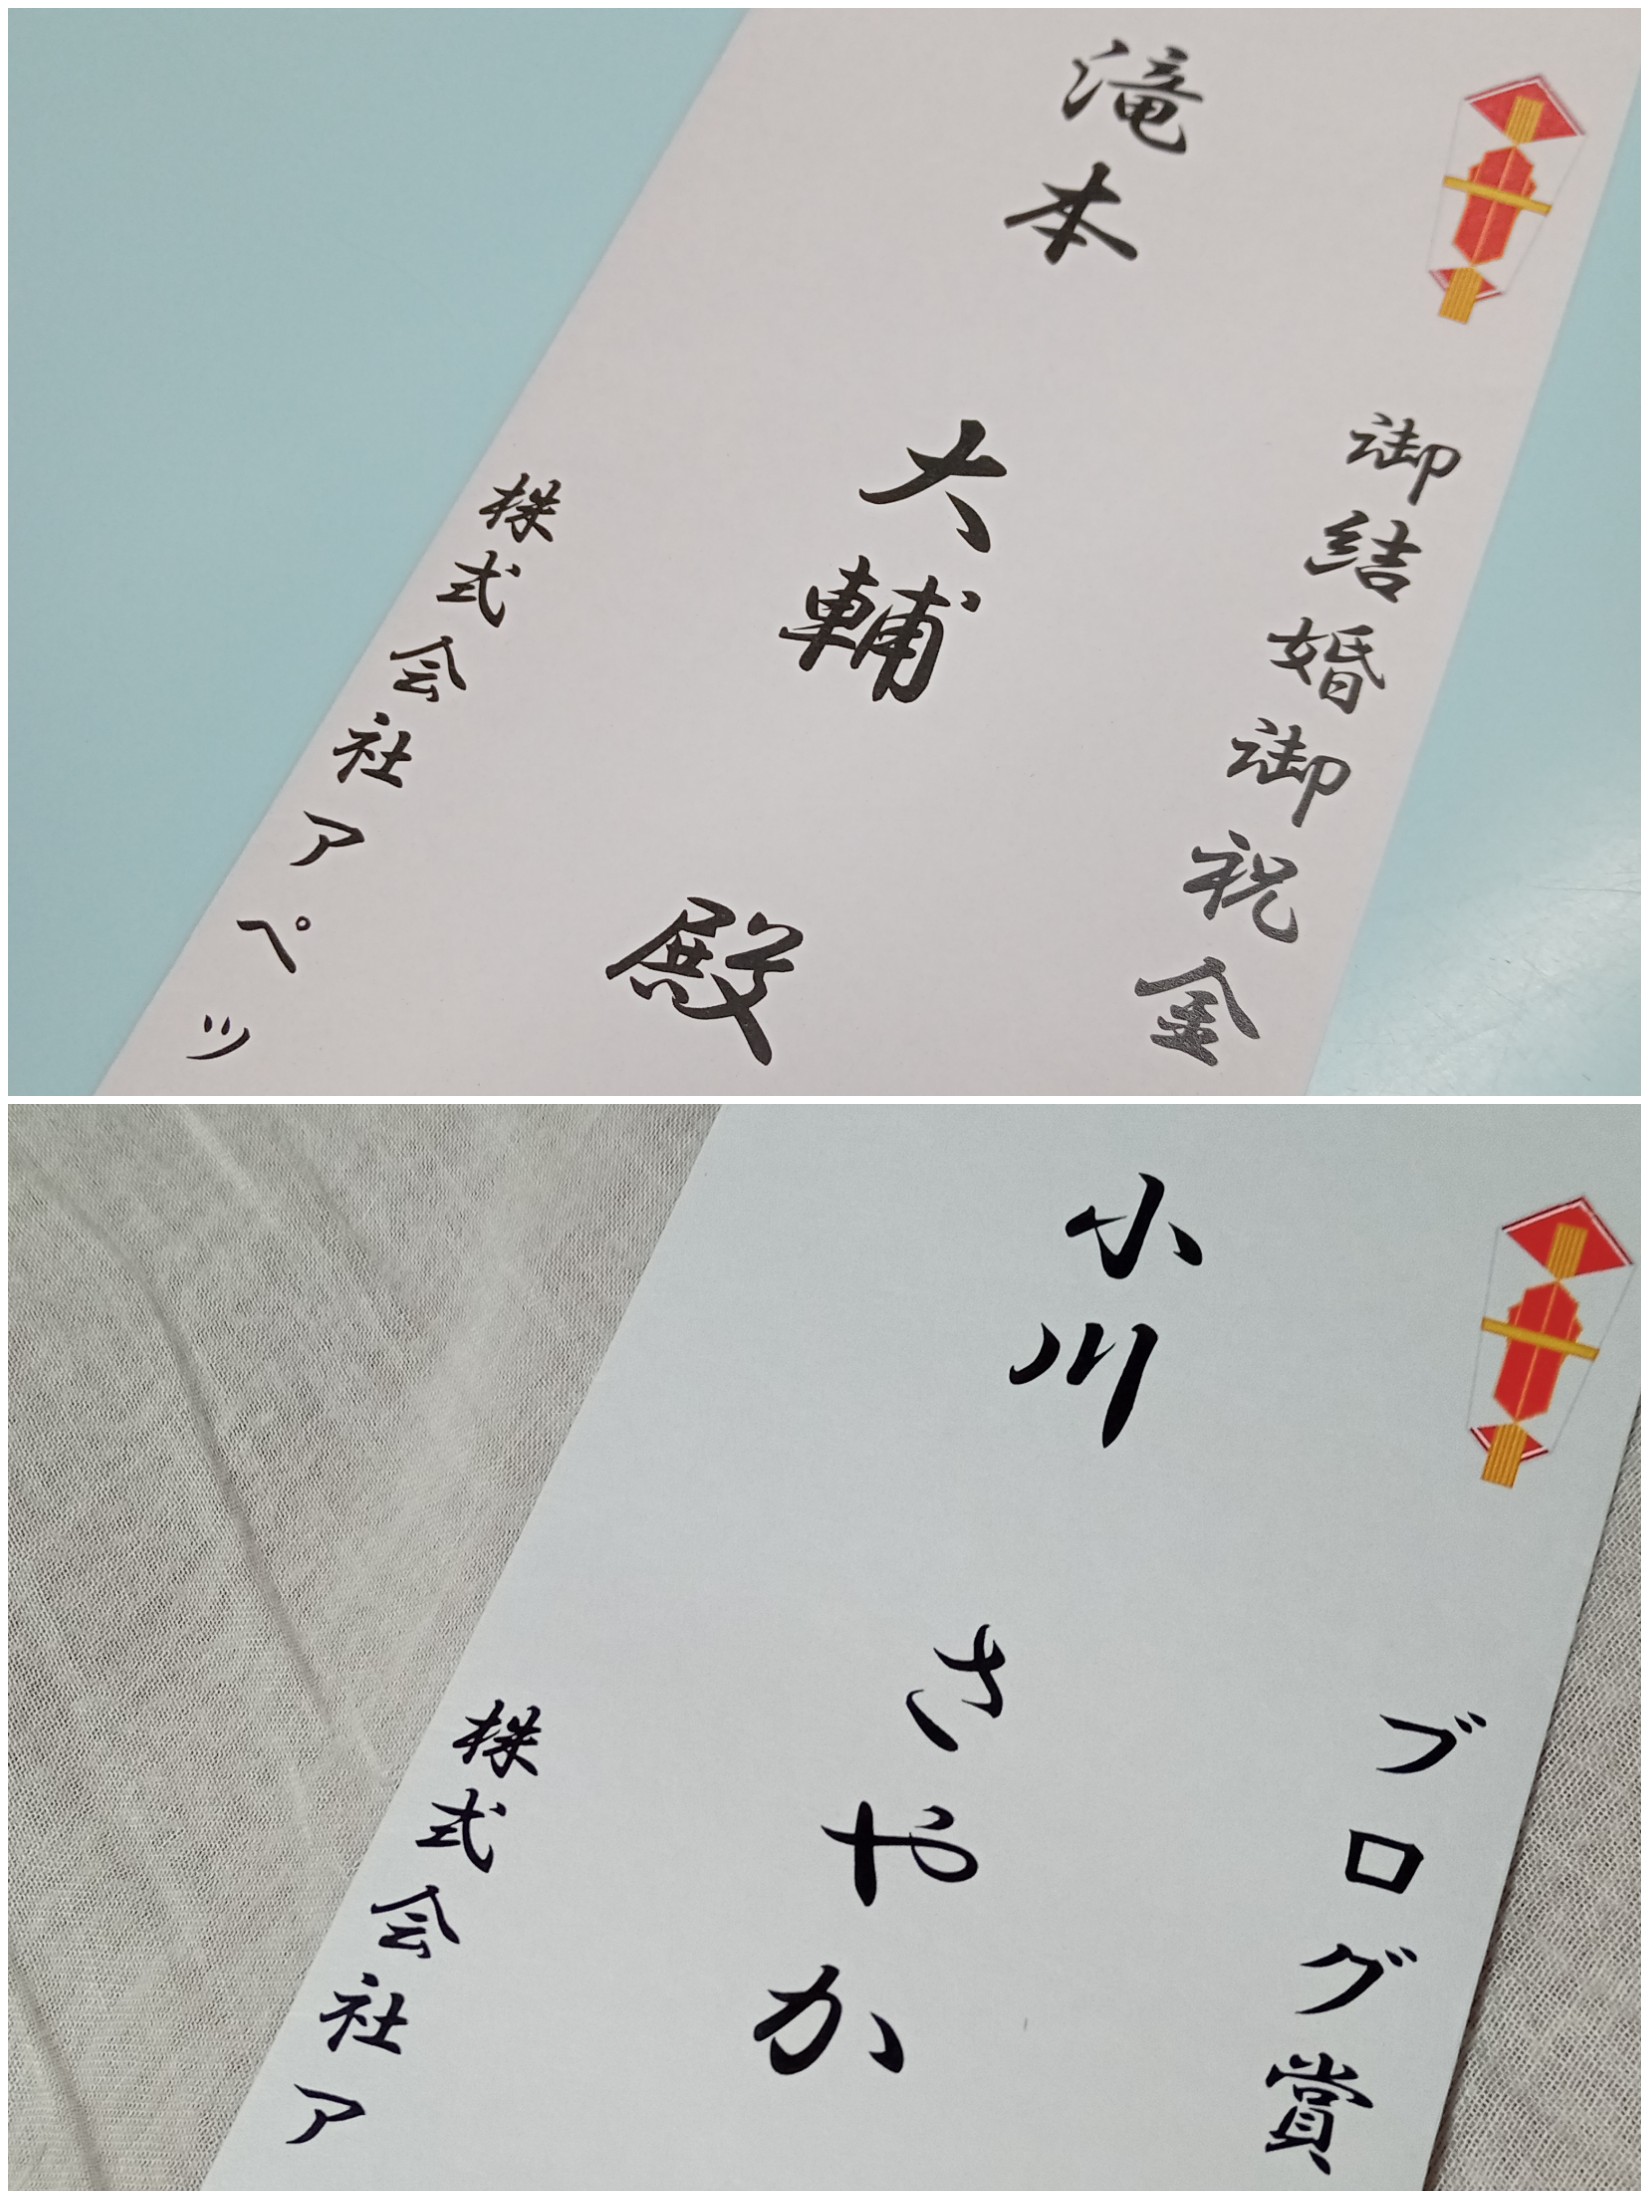 御結婚御祝金
滝本 大輔 殿
株式会社アペッ
ブログ賞
小川 さやか
株式会社ア